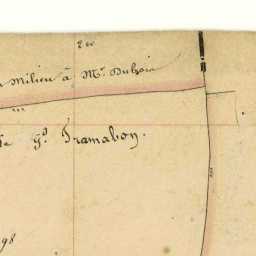 200
milieu à Mr. Dubois
gd. Tramabon.
98